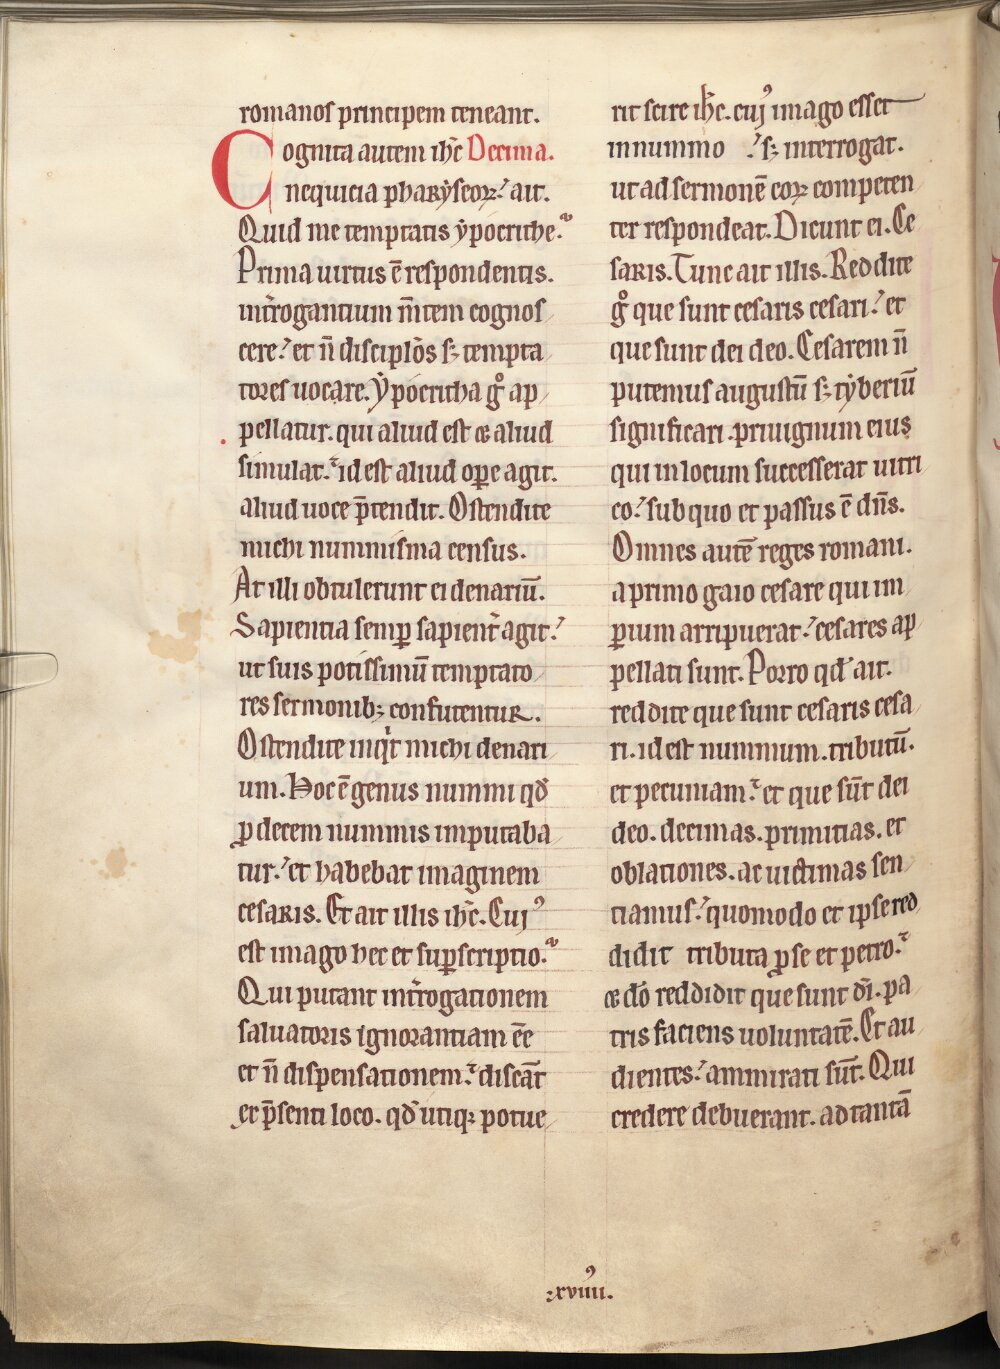 romanos principem teneant.
Cognita autem ih̄c Decima.
nequicia pharẏseoꝝ? ait.
Quid me temptatis ẏpocrithe?
Prima uirtus ē respondentis.
int̄rogantium m̄tem cognos
cere? et n̄ discipl̄os sꝫ tempta
tores uocare. ẏpocritha gͦ ap
pellatur. qui aliud est & aliud
simulat. id est aliud oꝑe agit.
aliud uoce p̄tendit. Ostendite
michi nummisma census.
At illi obtulerunt ei denariū.
Sapientia semꝑ sapient̄ agit?
ut suis potissimū temptato
res sermonibꝫ confutentur.
Ostendite inqͥt michi denari
um. Hoc ē genus nummi qđ
ꝓ decem nummis imputaba
tur? et habebat imaginem
cesaris. Et ait illis ih̄c. Cuiꝰ
est imago hec et suꝑscriptio?
Qui putant int̄rogationem
saluatoris ignorantiam ēe
et n̄ dispensationem. discāt
et p̄senti loco. qđ utiqꝫ potue
rit scire ih̄c. cuiꝰ imago esset
in nummo ? sꝫ interrogat.
ut ad sermonē eoꝝ competen
ter respondeat. Dicunt ei. Ce
saris. Tunc ait illis. Reddite
gͦ que sunt cesaris cesari? et
que sunt dei deo. Cesarem n̄
putemus augustū sꝫ tẏberiū
significari. priuignum eius
qui in locum successerat uitri
co? sub quo et passus ē dn̄s.
Omnes autē reges romani.
a primo gaio cesare qui im
ꝑium arripuerat? cesares ap
pellati sunt. Porro qđ ait.
reddite que sunt cesaris cesa
ri. id est nummum. tributū.
et pecuniam. et que sūt dei
deo. decimas. primitias. et
oblationes. ac uictimas sen
tiamus? quomodo et ipse red
didit tributa ꝓ se et petro.
& dō reddidit que sunt dī. pa
tris faciens uoluntatē. Et au
dientes? ammirati sūt. Qui
credere debuerant. ad tantā
.xviiiiꝰ.